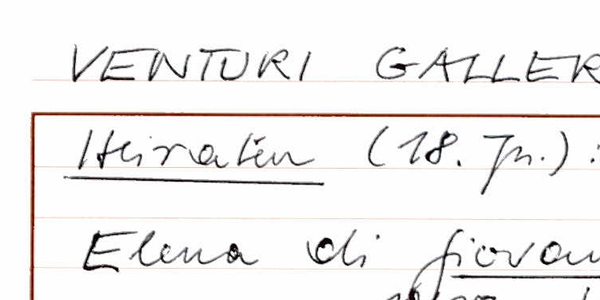 VENTURI GALLER
Heiraten (18. Jh.):
Elena di Giovan